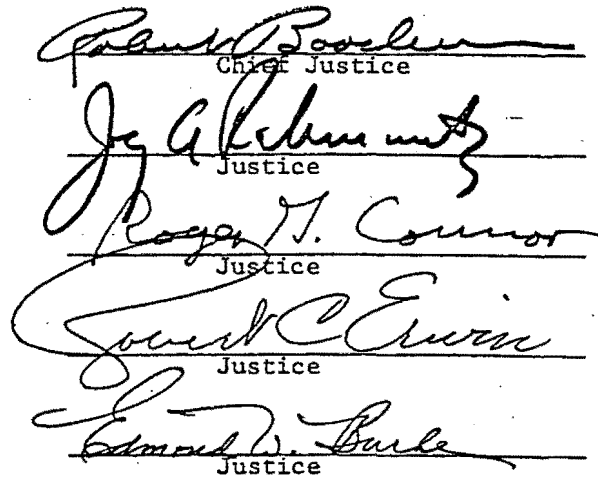 Robert Boochever
Chief Justice
Jay A Rabinowitz
Justice
Roger G. Connor
Justice
Robert C Erwin
Justice
Edmond W. Burke
Justice